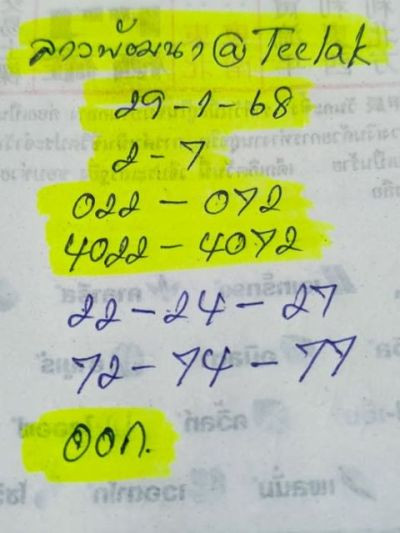 ลาวพัฒนา @ Teelak
29-1-68
2-7
022 - 072
4022 - 4072
22 - 24 - 27
72 - 74 - 77
ออก.